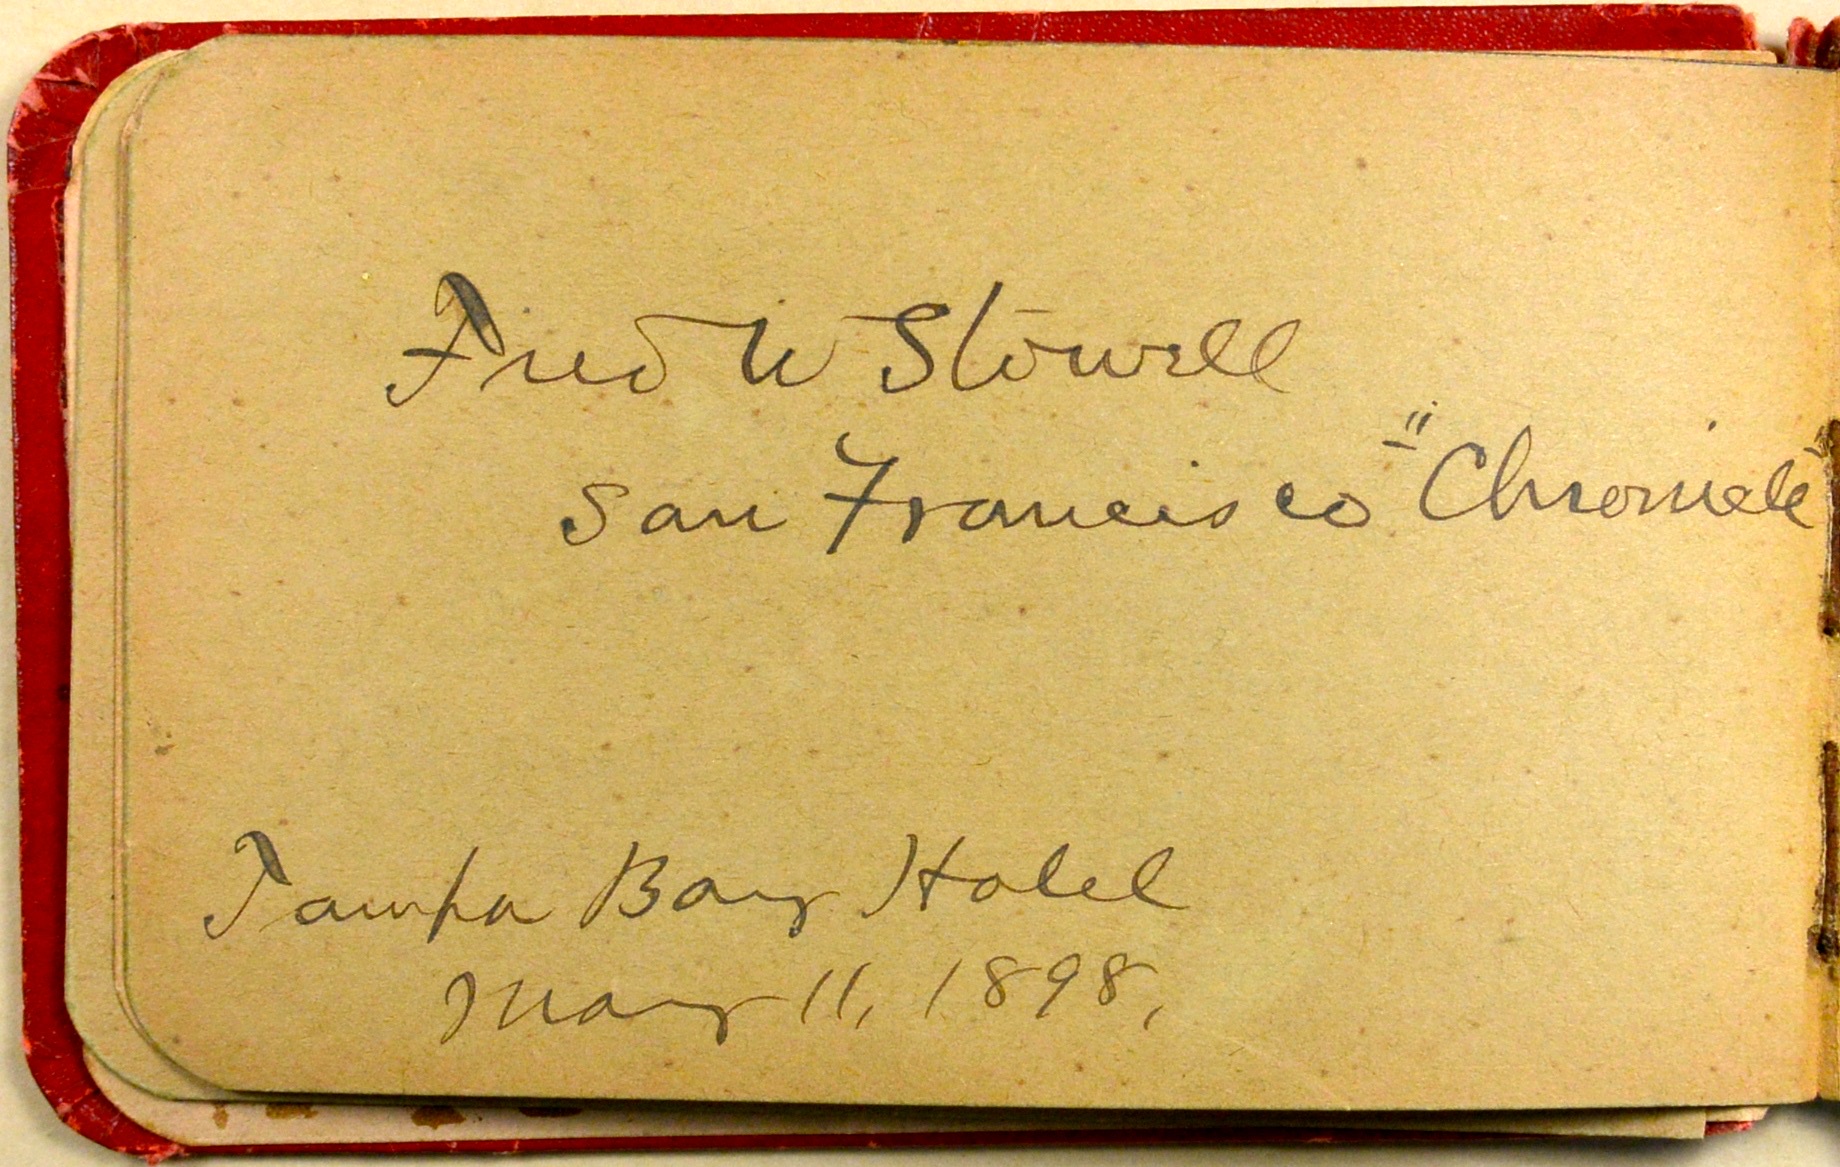 Fred W Stowell
San Francisco "Chronicle"
Tampa Bay Hotel
May 11, 1898,